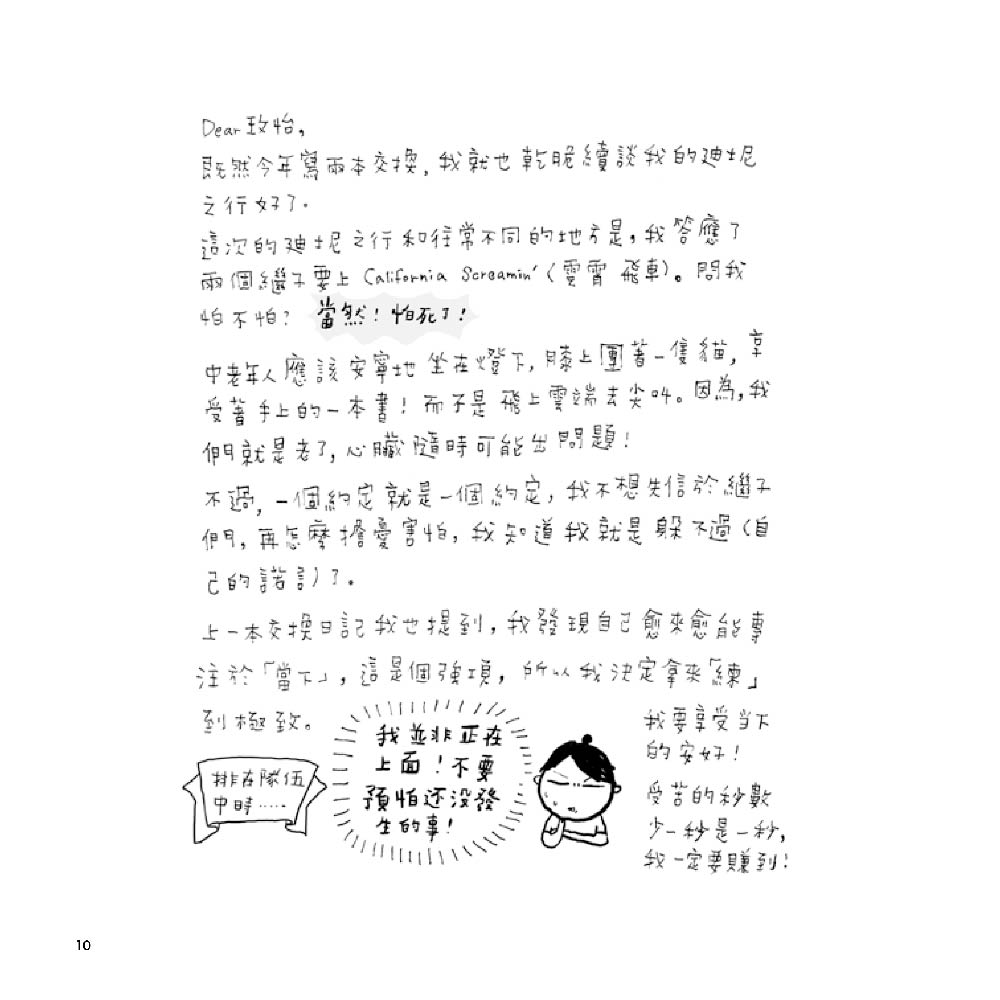 Dear 玫怡,
既然今年寫兩本交換,我就也乾脆續談我的迪士尼
之行好了.
這次的迪士尼之行和往常不同的地方是,我答應了
兩個繼子要上 California Screamin'(雲霄飛車)。問我
怕不怕? 當然!怕死了!
中老年人應該安寧地坐在燈下,膝上團著一隻貓,享
受著手上的一本書!而不是飛上雲端去尖叫。因為,我
們就是老了,心臟隨時可能出問題!
不過,一個約定就是一個約定,我不想失信於繼子
們,再怎麼擔憂害怕,我知道我就是躲不過(自
己的諾言)了。
上一本交換日記我也提到,我發現自己愈來愈能專
注於「當下」,這是個強項,所以我決定拿來「練」
到極致。
排在隊伍
中時.....
我並非正在
上面!不要
預怕还没發
生的事!
我要享受當下
的安好!
受苦的秒數
少一秒是一秒,
我一定要賺到!
10